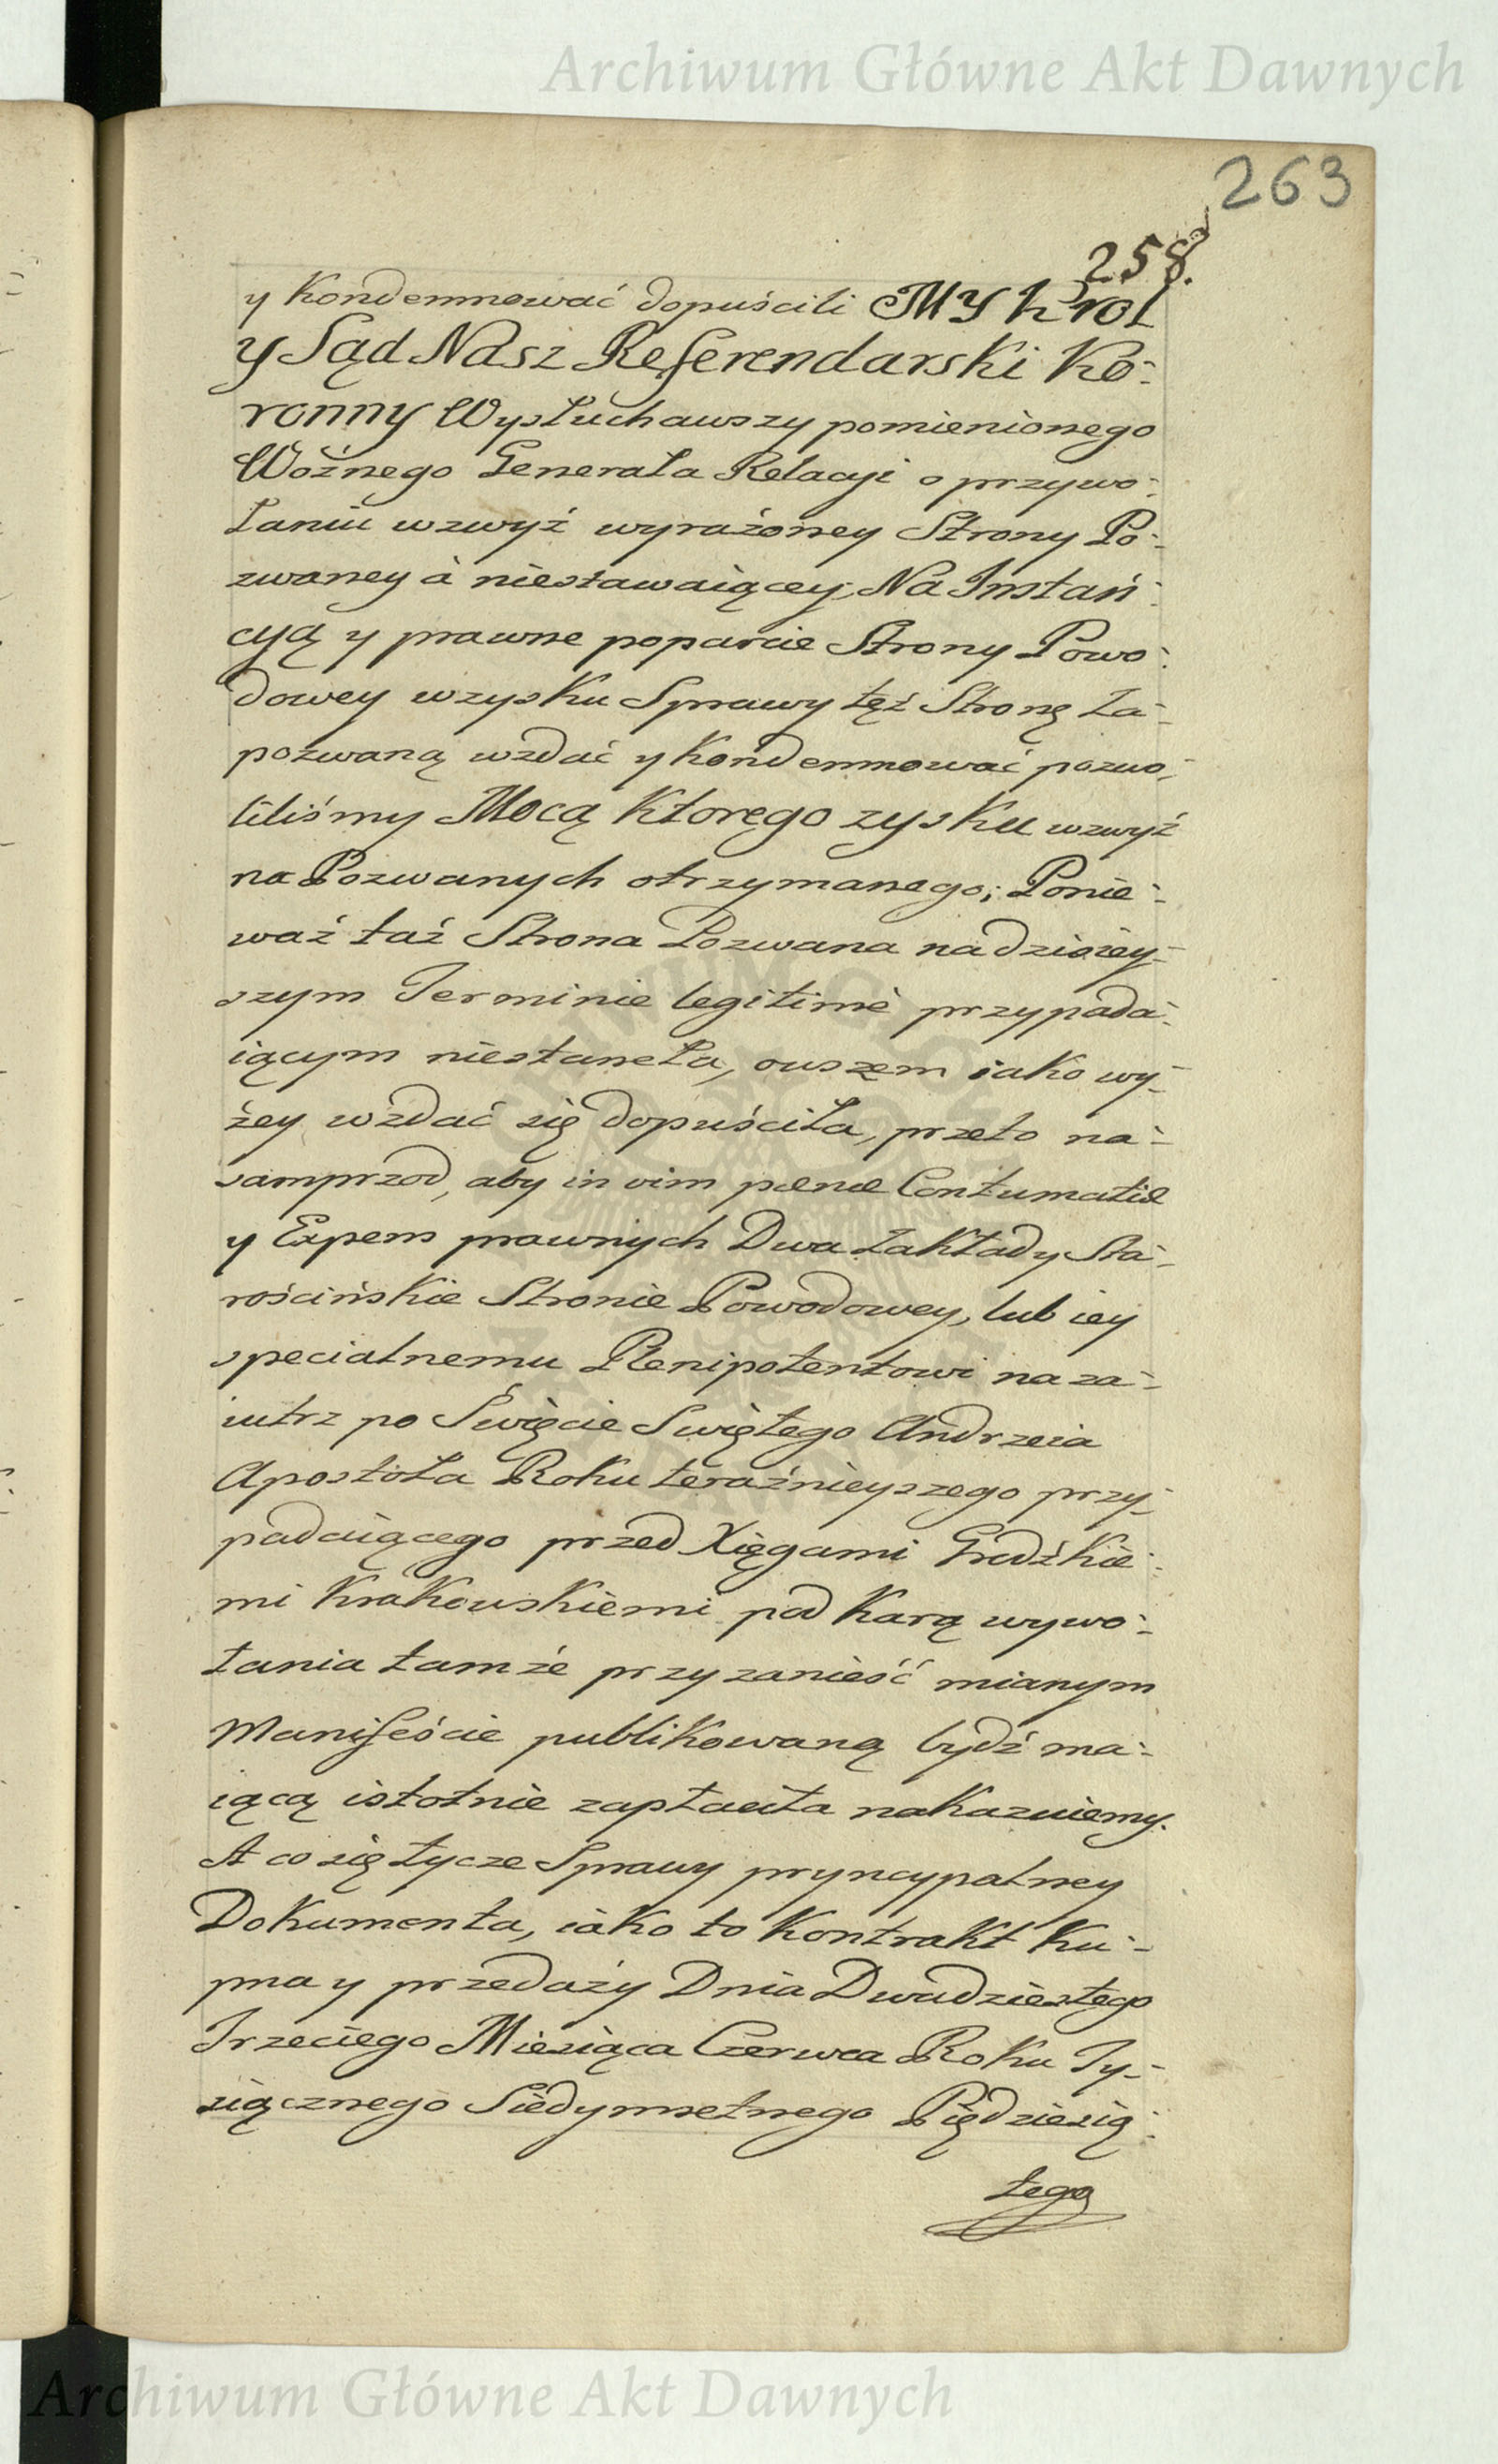 Archiwum Główne Akt Dawnych
263
258.
y Kondemnować dopuścili MY Krol
y Sąd Nasz Referendarski Ko-
ronny Wysłuchawszy pomienionego
Woźnego Generała Relacyi o przywo-
łaniu wzwyż wyrażoney Strony Po-
zwaney à niestawaiącey, Na Instań-
cyą y prawne poparcie Strony Powo-
dowey wzysku Sprawy tęż Stronę Za-
pozwaną wzdać y Kondemnować pozwo-
liliśmy Mocą Ktorego zysku wzwyż
na Pozwanych otrzymanego; Ponie-
waż taż Strona Pozwana na dzisiey-
szym Terminie legitimè przypada-
iącym niestaneła, owszem iako wy-
żey wzdać się dopuściła, przeto na-
samprzod, aby in vim pœnœ Contumatiœ
y Expens prawnych Dwa Zakłady Sta-
rościńskie Stronie Powodowey, lub iey
specialnemu Plenipotentowi na za-
iutrz po Święcie Swiętego Andrzeia
Apostoła Roku teraźnieyszego przy-
padaiącego przed Xięgami Grodźkie-
mi Krakowskiemi pod Karą wywo-
łania tamże przy zanieść mianym
Manifeście publikowaną bydź ma-
iącą istotnie zapłaciła nakazuiemy.
A co się tycze Sprawy pryncypalney
Dokumenta, iako to Kontrakt Ku-
pna y przedaży Dnia Dwudziestego
Trzeciego Miesiąca Czerwca Roku Ty-
siącznego Siedymsetnego Piędziesią-
tego
Archiwum Główne Akt Dawnych